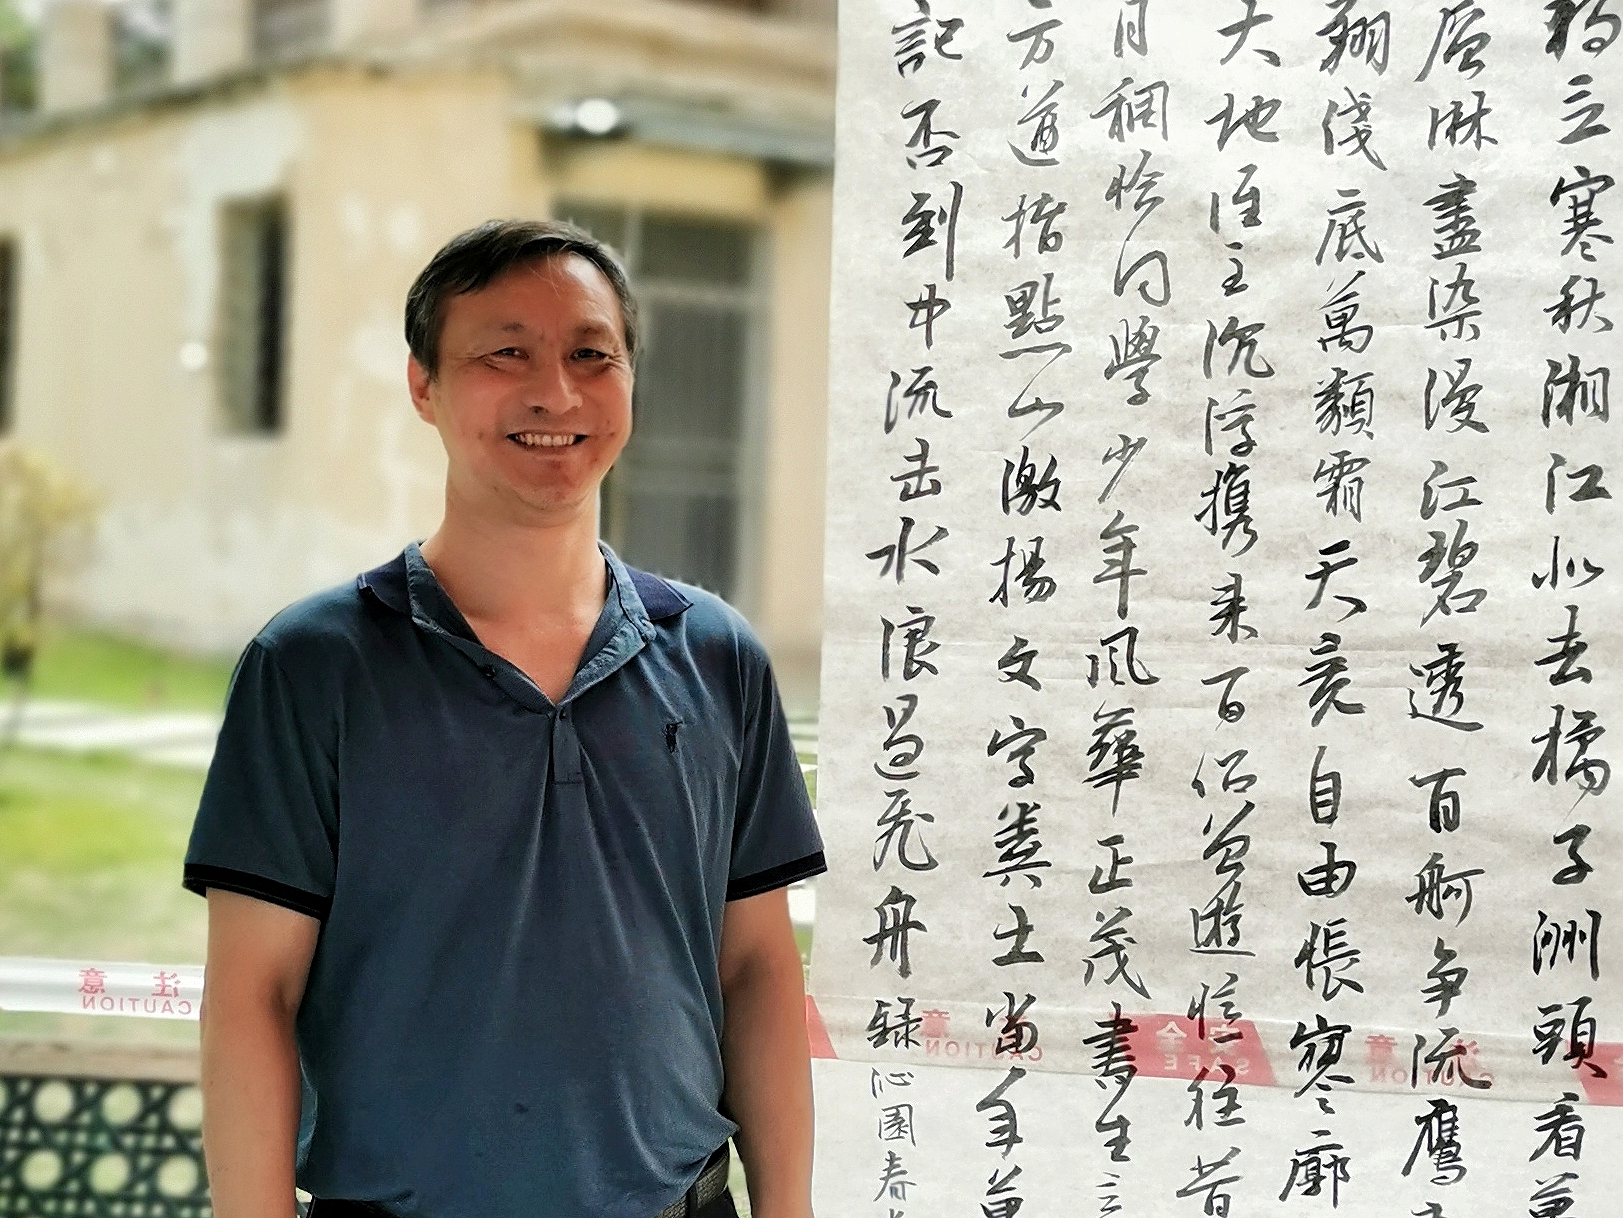 獨立寒秋湘江北去橘子洲頭看萬
層淋盡染漫江碧透百舸争流鷹
翔淺底萬類霜天竞自由悵寥廓
大地誰主沉浮携来百侣曾遊憶往昔
月稠恰同學少年風華正茂書生意
方遒指點山激揚文字糞土當年萬
記否到中流击水浪遏飛舟録沁園春
注意
CAUTION
注意
CAUTION
安全
SAFE
注意
CAUTION